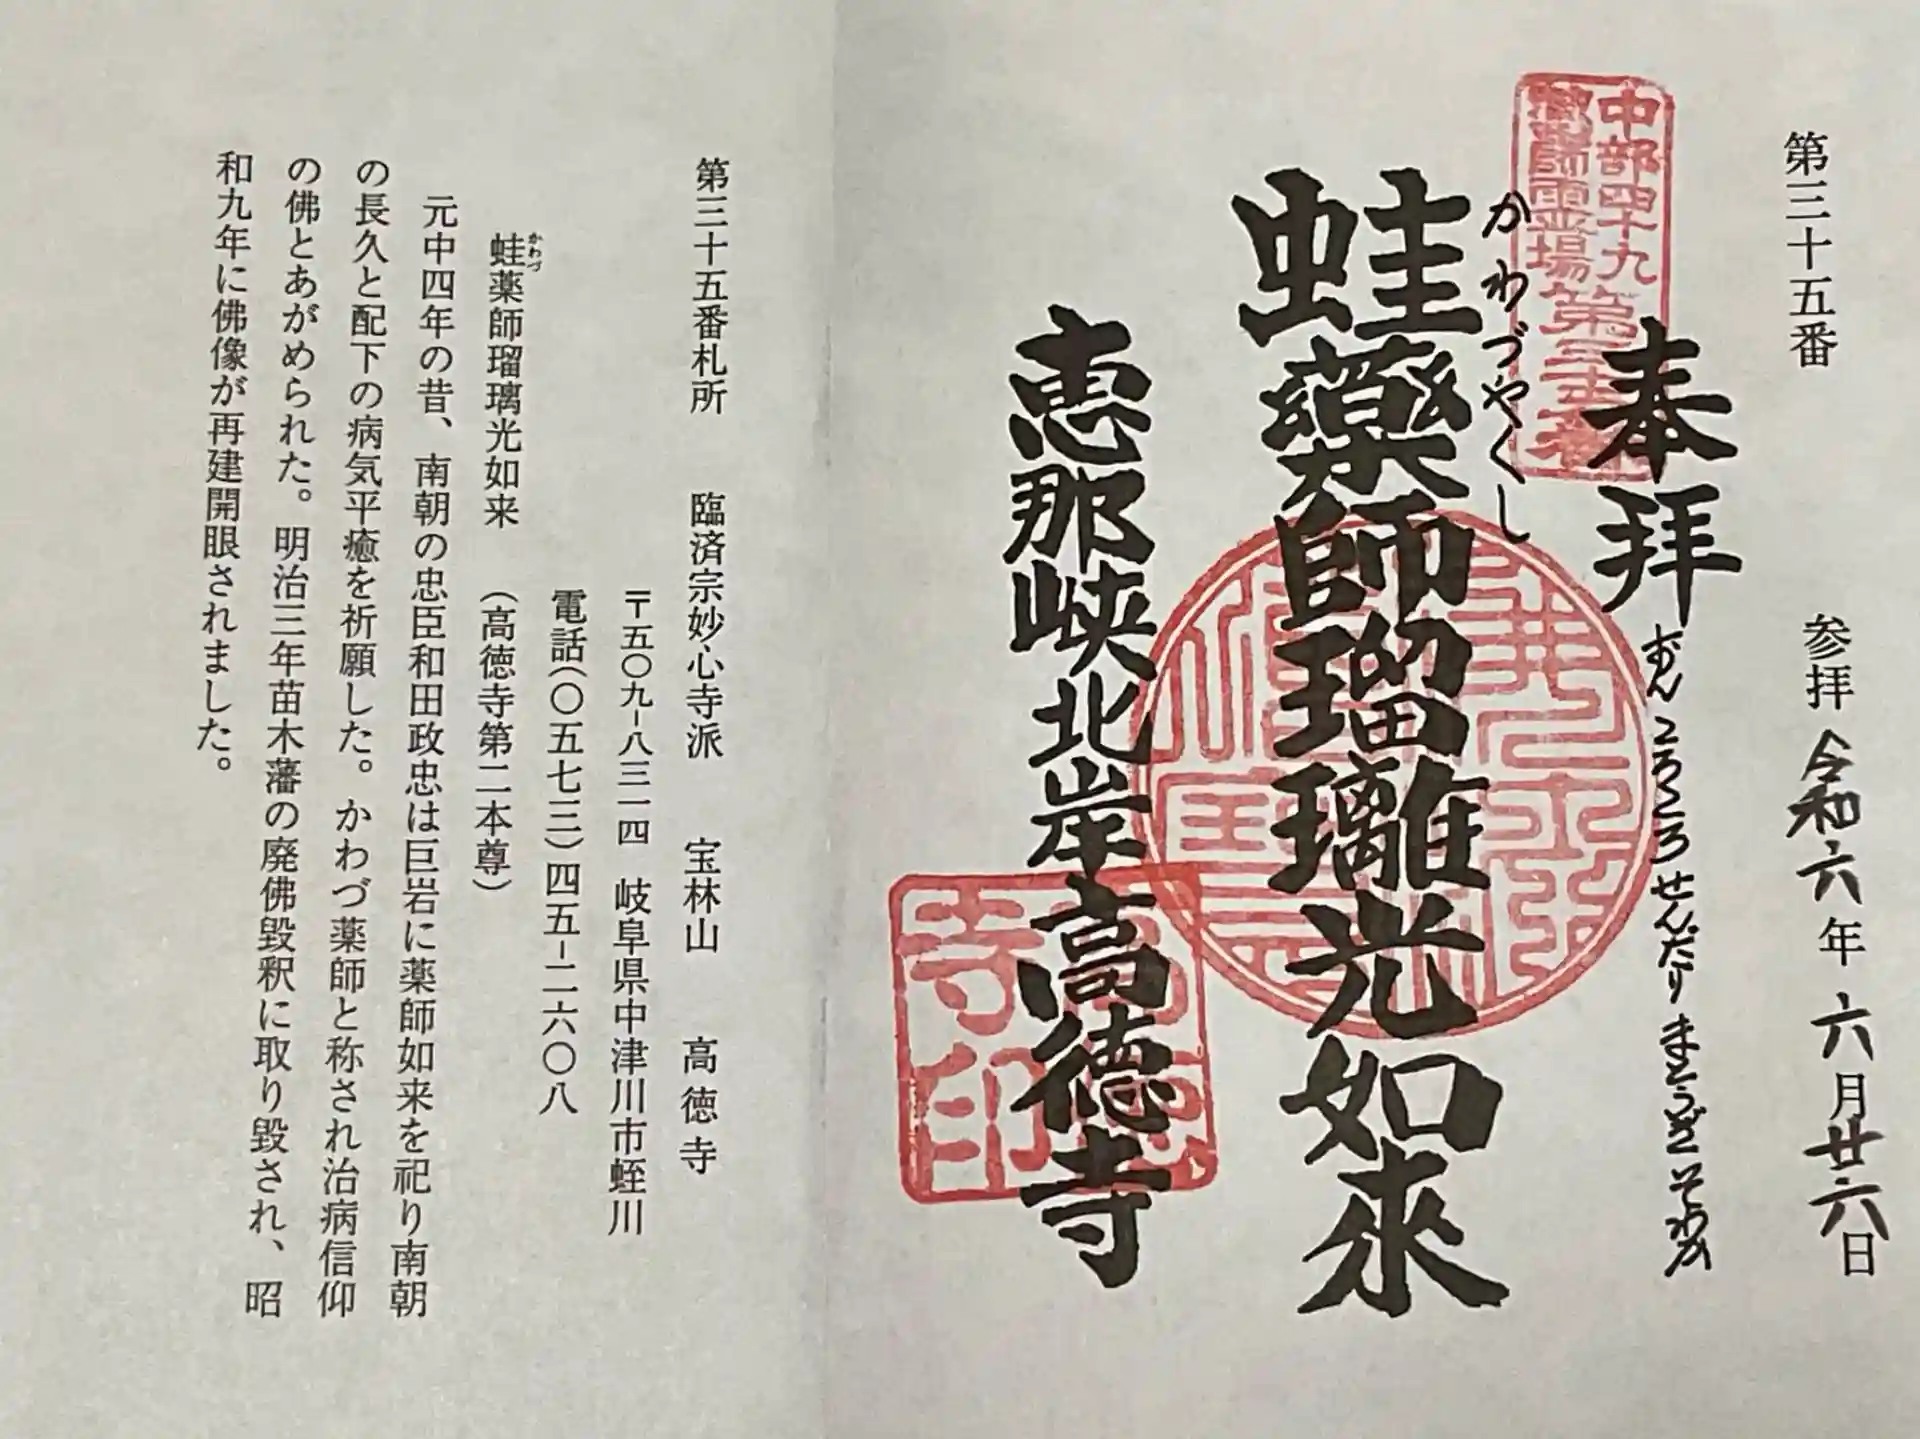 第三十五番
参拝 令和六年 六月廿六日
おん ころころ せんだり まとうぎ そわか
奉拝
中部四十九
薬師霊場第三十五番
かわづやくし
蛙薬師瑠璃光如來
恵那峡北岸高徳寺
寺印
第三十五番札所 臨済宗妙心寺派 宝林山 高徳寺
〒五〇九-八三一四 岐阜県中津川市蛭川
電話(〇五七三)四五-二六〇八
かわづ
蛙薬師瑠璃光如来 (高徳寺第二本尊)
元中四年の昔、南朝の忠臣和田政忠は巨岩に薬師如来を祀り南朝
の長久と配下の病気平癒を祈願した。かわづ薬師と称され治病信仰
の佛とあがめられた。明治三年苗木藩の廃佛毀釈に取り毀され、昭
和九年に佛像が再建開眼されました。